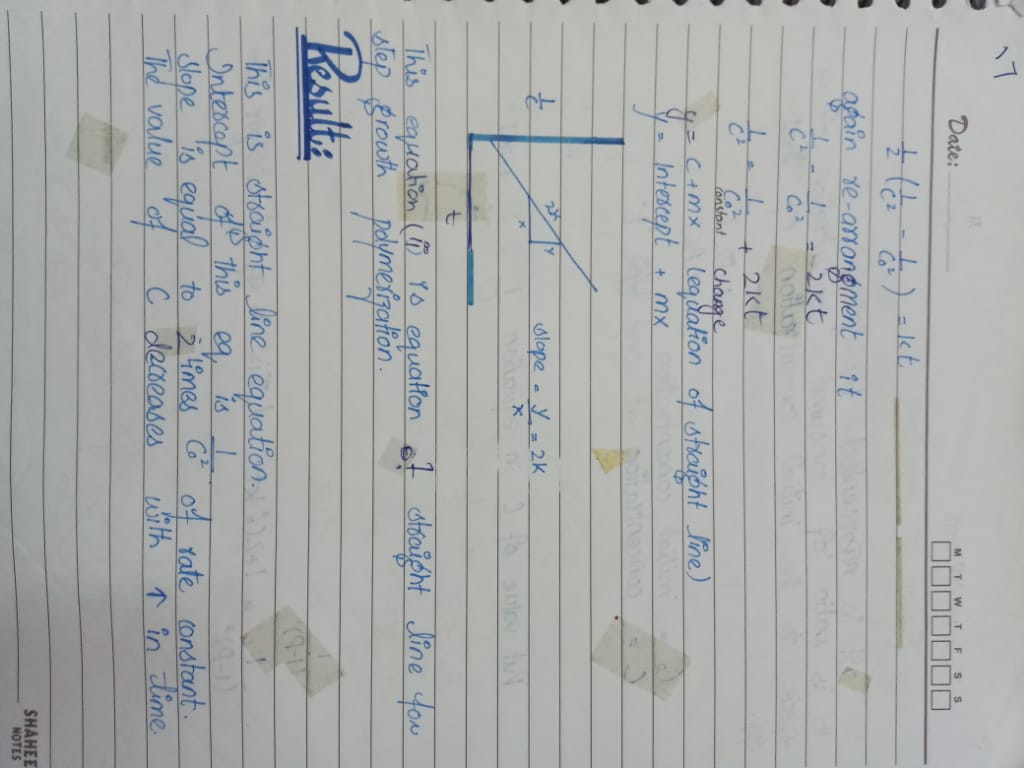 17
Date:
M T W T F S S
1/2 (1/C² - 1/C₀²) = kt
again re-arrangment it
1/C² - 1/C₀² = 2kt
1/C² = 1/C₀² + 2kt
constant change
y = c + mx (equation of straight line)
y = Intercept + mx
1/C
2k
x
y
slope = y/x = 2k
t
This equation (ii) is equation of straight line for
step growth polymeriration.
Result:
This is straight line equation.
Intercept of this eq is 1/C₀²
slope is equal to 2 times of rate constant.
The value of C decreases with ↑ in time.
SHAHEE
NOTES